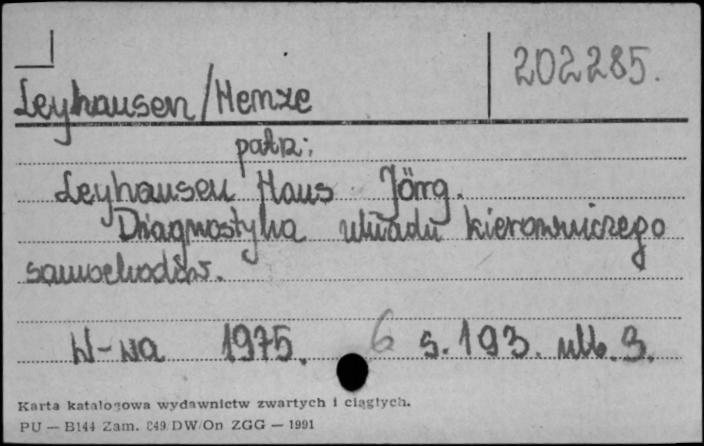 202285.
Leyhausen/Henze
patrz:
Leyhausen Hans Jörg.
Diagnostyka układu kierowniczego
samochodów.
W-wa 1975. 6 s. 193. nlb. 3.
Karta katalogowa wydawnictw zwartych i ciągłych.
PU — B144 Zam. 849/DW/On ZGG — 1991